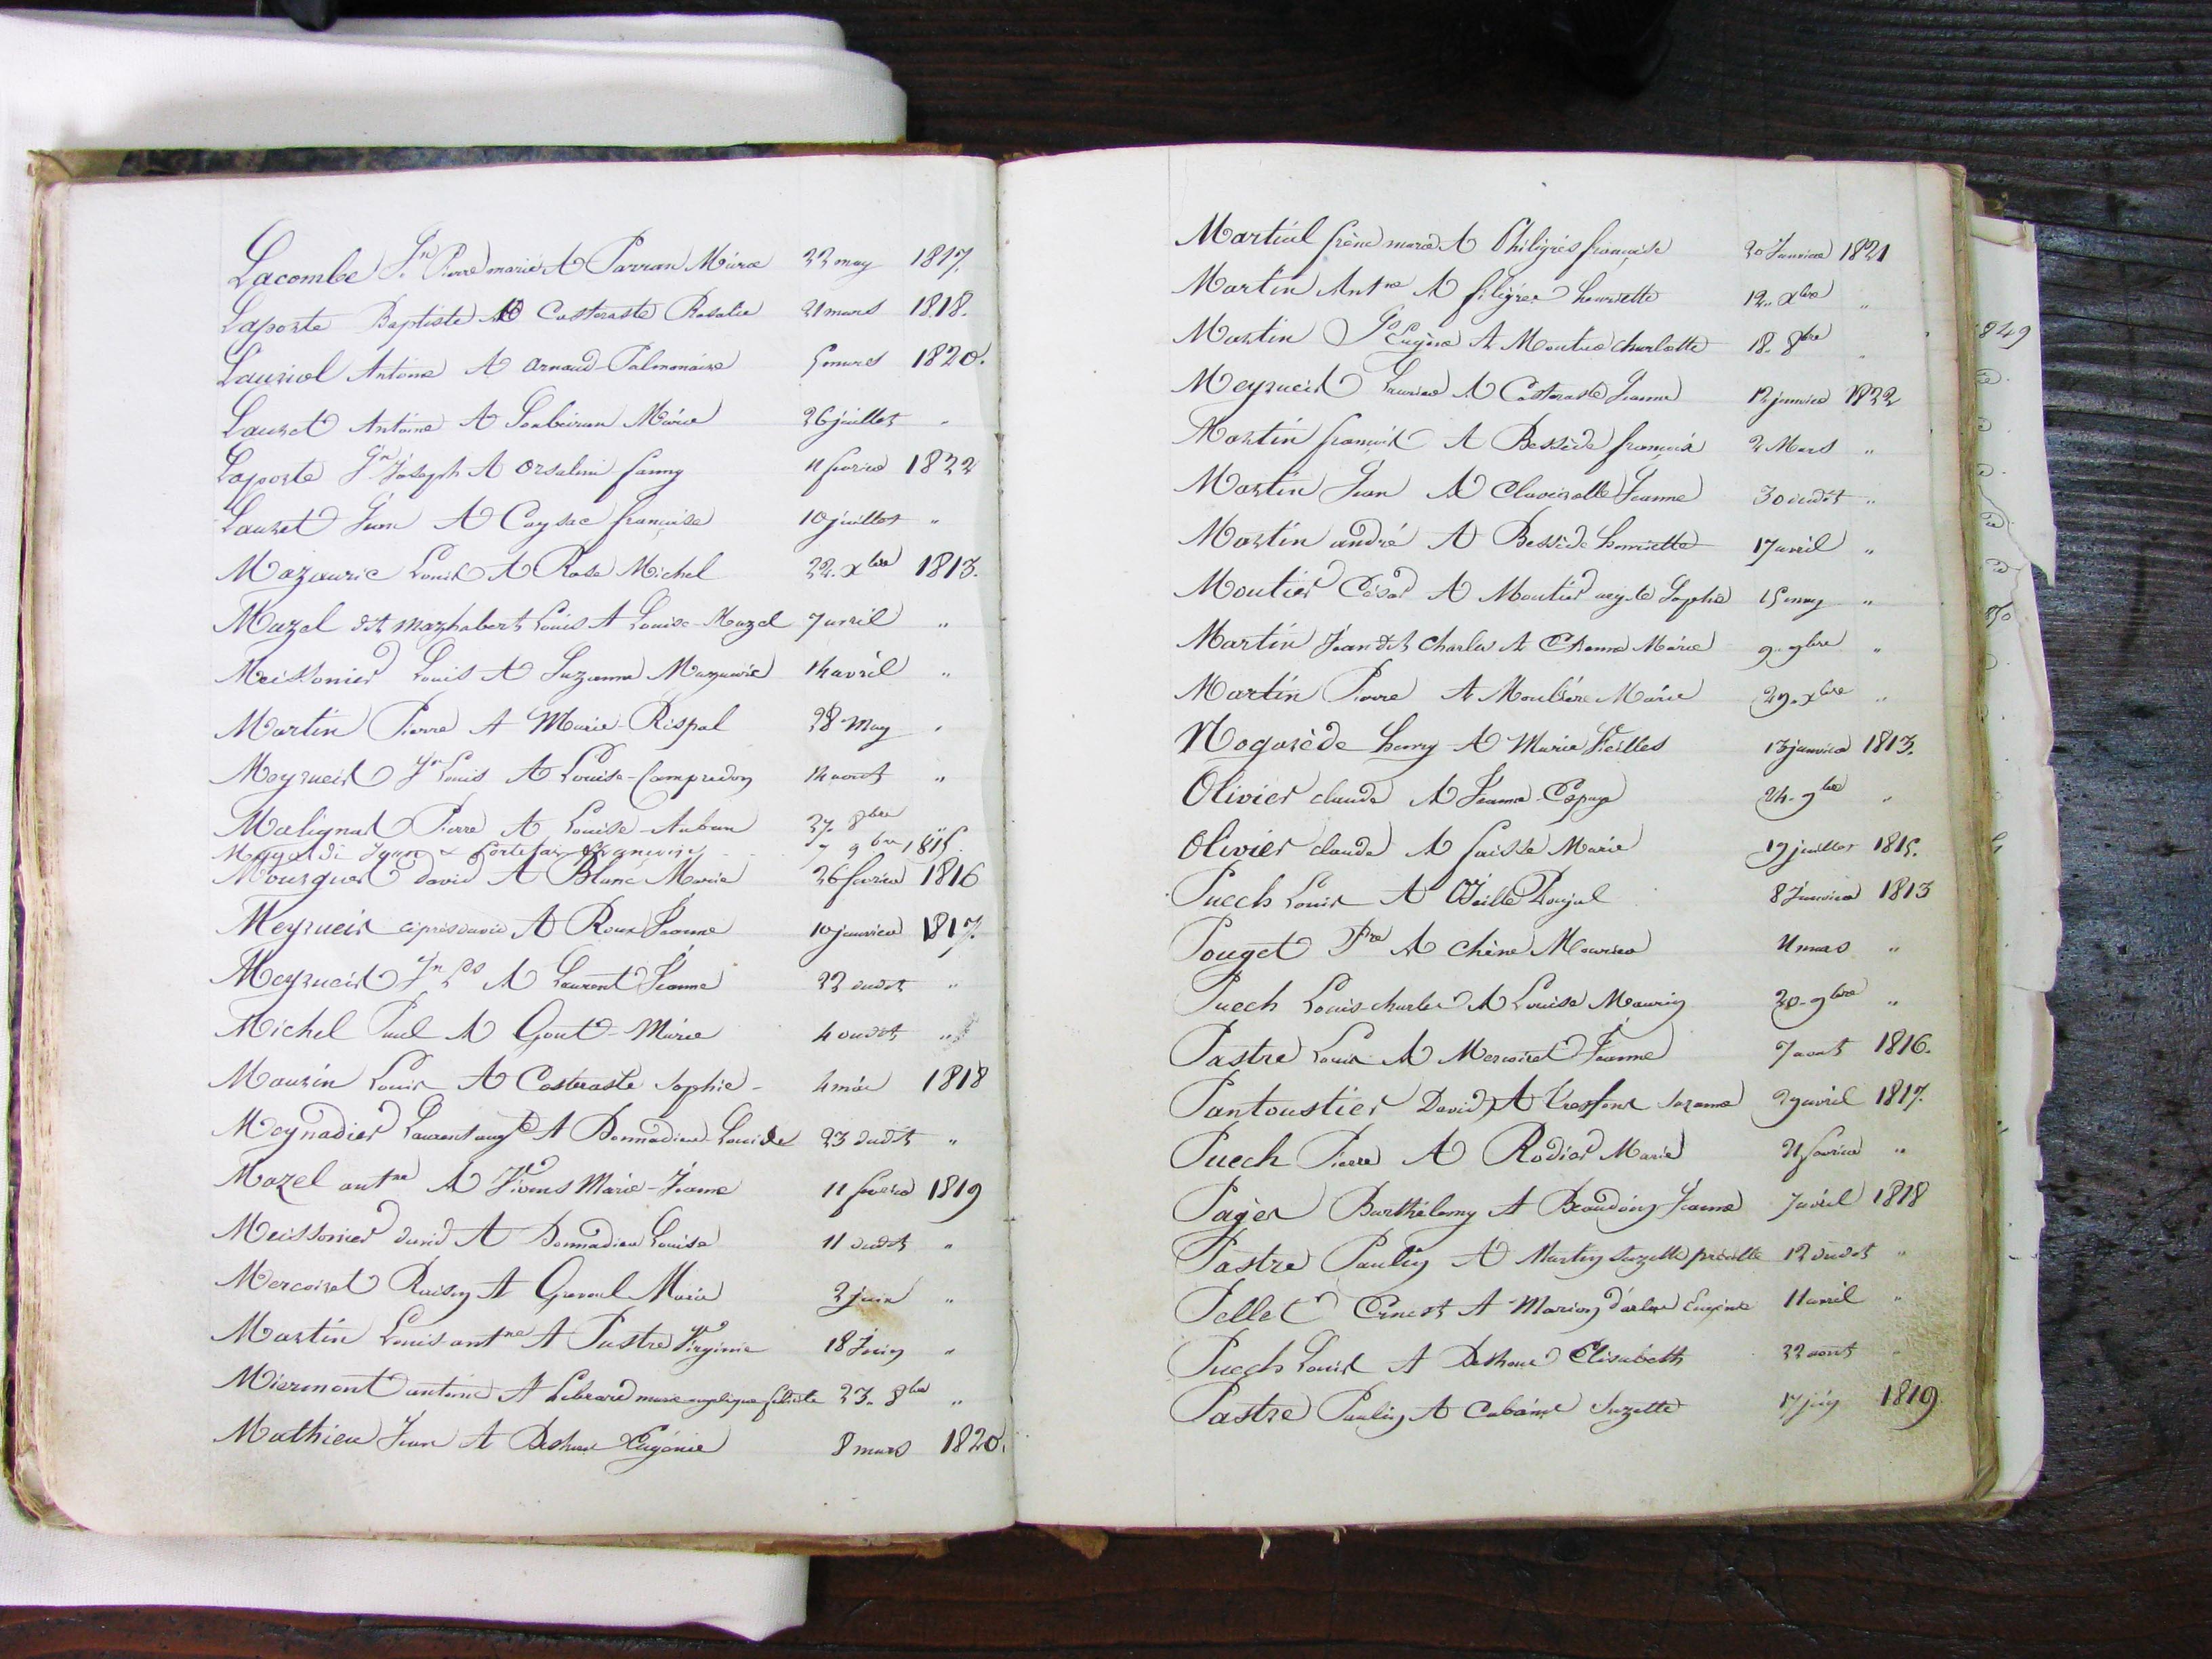 Lacombe Jn Pierre marié A Parran Marie 22 may 1817.
Laporte Baptiste A Casteraste Rosalie 21 mars 1818.
Lauriol Antoine A Arnaud Palmonaire 5 mars 1820.
Lauret Antoine A Soubeiran Marie 26 juillet "
Laporte Jn Joseph A Orsalini fanny 11 fevrier 1822
Lauret Jean A Caysac françoise 10 juillet "
Mazauric Louis A Rose Michel 22. xbre 1813.
Mazel dit mazhabert Louis A Louise Mazel 7 avril "
Meissonier Louis A Suzanne Mazauric 14 avril "
Martin Pierre A Marie Rispal 28 May "
Meyrueis Jn Louis A Louise Campredon 14 aout "
Malignas Pierre A Louise Auban 27. 8bre "
Jean & Portefaix françoise 7 9bre 1815.
Mourgues david A Blanc Marie 26 fevrier 1816
Meyrueis david A Roux Jeanne 10 janvier 1817.
Meyrueis Jn Ls A Laurent Jeanne 22 dudit "
Michel Paul A Gout Marie 4 oudot "
Maurin Louis A Casteraste Sophie 4 mai 1818
Meynadier Laurent augte A Donnadieu Louise 23 dudit "
Mazel antne A Vivens Marie Jeanne 11 fevrier 1819
Meissonier david A Donnadieu Louise 11 dudit "
Mercoiret A Marie 2 juin "
Martin Louis antne A Pastre Virginie 18 Juin "
Miermont antoine A marie angelique 23. 8bre "
Mathieu Jean A Deshous Eugénie 8 mars 1820.
Martial frène marié A Philigrés françoise 20 Janvier 1821
Martin Antne A filigrer henriette 12.. xbre "
Martin Eugène A Charlotte 18. 8bre "
Meyrueis Laurier A Casteraste Jeanne 12 janvier 1822
Martin françois A Bessède françois 2 Mars "
Martin Jean A Clavirolle Jeanne 30 dudit "
Martin andré A Bessède henriette 17 avril "
Moutier César A Moutier Sophie 15 may "
Martin Jean dit Charles A Marie 9.. 9bre "
Martin Pierre A Moulière Marie 29. xbre "
Nogarède henry A Marie Vieilles 13 janvier 1813.
Olivier claude A Jeanne Espaze 24. 9bre "
Olivier claude A faisse Marie 19 juillet 1815.
Puech Louis A Poujol 8 Janvier 1813
Pouget Pre A chêne Marie 4 mars "
Puech Louis-charles A Louise Maurin 20. 9bre "
Pastre Louis A Mercoiret Jeanne 7 aout 1816.
Pantoustier David A 29 avril 1817.
Puech Pierre A Rodier Marie 21 fevrier "
Pagès Barthélemy A Beaudoin Jeanne 7 avril 1818
Pastre Paulin A Martin Suzette 12 dudit "
Pellet Ernest A Marion d'arlac Eugénie 11 avril "
Puech Louis A Deshous Elisabeth 22 aout "
Pastre Paulin A Cabane Suzette 17 juin 1819
1849